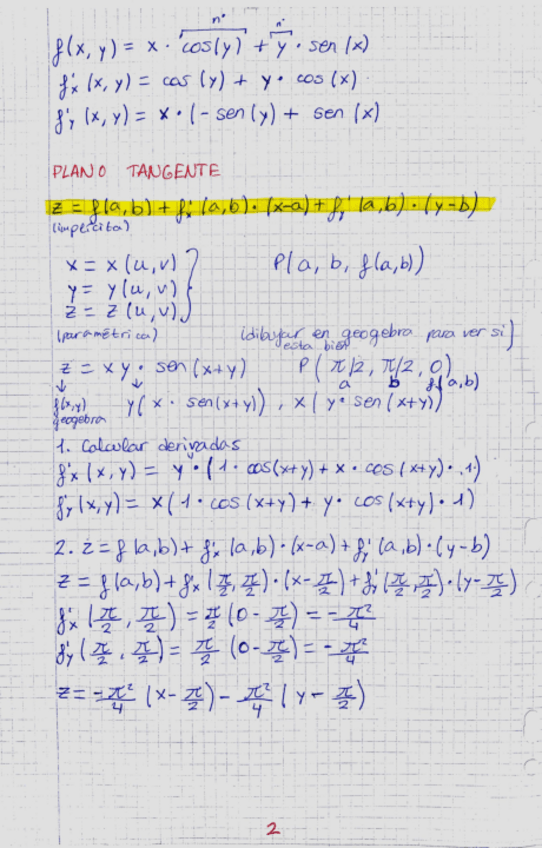 n°  n°
f(x, y) = x · cos(y) + y · sen (x)
f'x (x, y) = cos (y) + y · cos (x)
f'y (x, y) = x · (- sen(y) + sen (x)
PLANO TANGENTE
z = f(a,b) + f'x (a,b) · (x-a) + f'y (a,b) · (y-b)
(implícita)
x = x (u,v) }  P(a, b, f(a,b))
y = y (u,v) }
z = z (u,v) }
(paramétrica)  (dibujar en geogebra para ver si
está bien)
z = x y · sen (x+y)  P ( π/2, π/2, 0)
↓ ↓  a b f(a,b)
f(x,y)  y( x · sen(x+y)) , x( y · sen (x+y))
geogebra
1. Calcular derivadas
f'x (x, y) = y · ( 1 · cos(x+y) + x · cos (x+y) · 1)
f'y (x,y) = x ( 1 · cos (x+y) + y · cos (x+y) · 1)
2. z = f (a,b) + f'x (a,b) · (x-a) + f'y (a,b) · (y-b)
z = f (a,b) + f'x (π/2, π/2) · (x-π/2) + f'y (π/2, π/2) · (y-π/2)
f'x (π/2, π/2) = π/2 (0 - π/2) = - π²/4
f'y (π/2, π/2) = π/2 (0 - π/2) = - π²/4
z = -π²/4 (x - π/2) - π²/4 ( y - π/2)
2